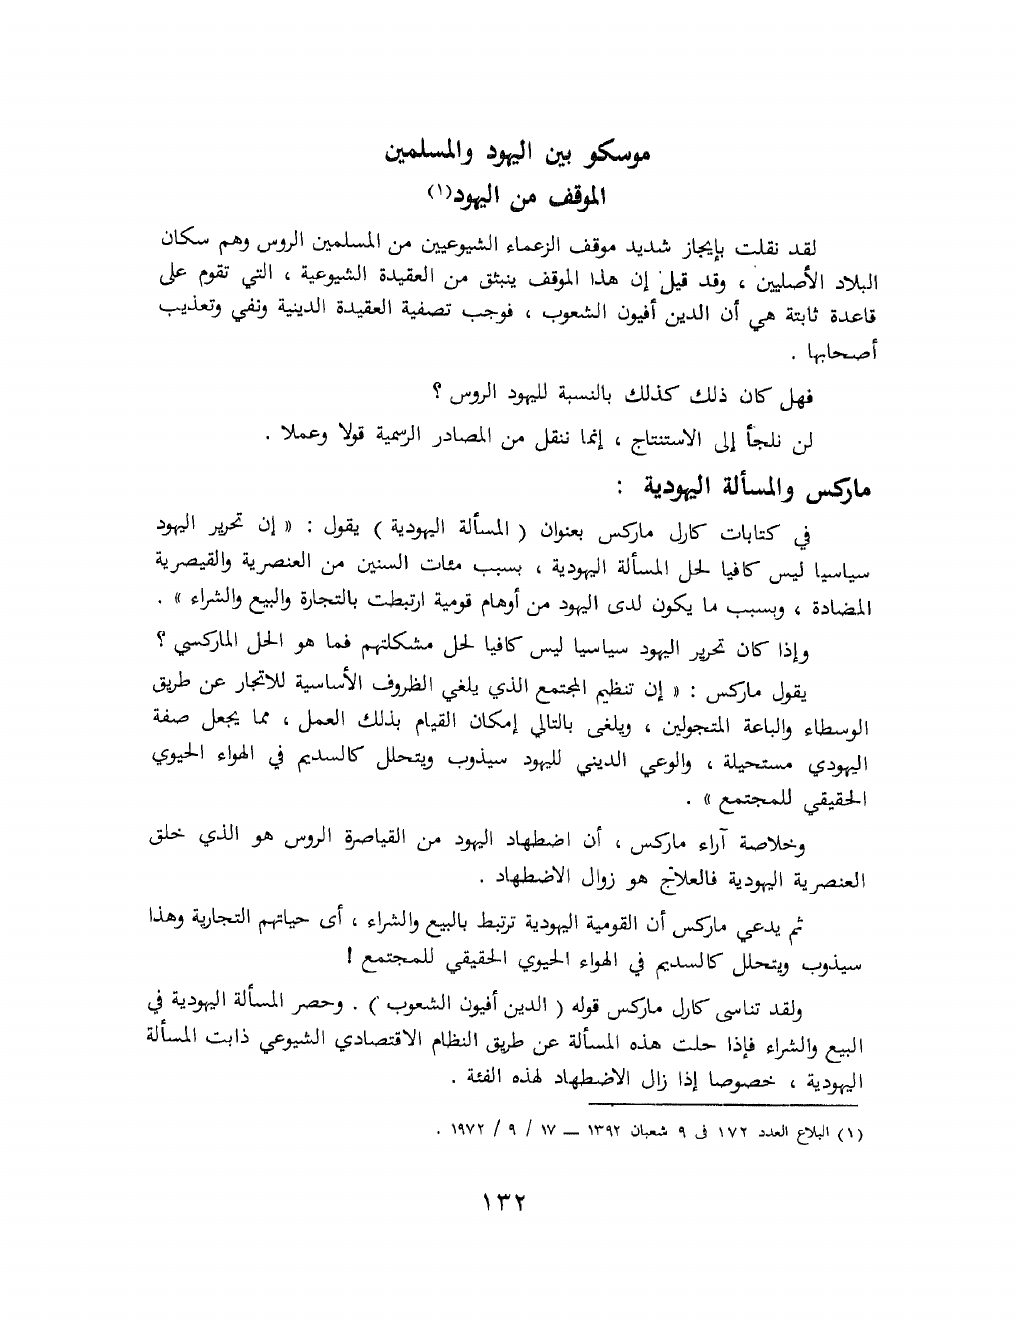 موسكو بين اليهود والمسلمين
الموقف من اليهود(١)
لقد نقلت بإيجاز شديد موقف الزعماء الشيوعيين من المسلمين الروس وهم سكان
البلاد الأصليين ، وقد قيل إن هذا الموقف ينبثق من العقيدة الشيوعية ، التي تقوم على
قاعدة ثابتة هي أن الدين أفيون الشعوب ، فوجب تصفية العقيدة الدينية ونفي وتعذيب
أصحابها .
فهل كان ذلك كذلك بالنسبة لليهود الروس ؟
لن نلجأ إلى الاستنتاج ، إنما ننقل من المصادر الرسمية قولا وعملا .
ماركس والمسألة اليهودية :
في كتابات كارل ماركس بعنوان ( المسألة اليهودية ) يقول : « إن تحرير اليهود
سياسيا ليس كافيا لحل المسألة اليهودية ، بسبب مئات السنين من العنصرية والقيصرية
المضادة ، وبسبب ما يكون لدى اليهود من أوهام قومية ارتبطت بالتجارة والبيع والشراء » .
وإذا كان تحرير اليهود سياسيا ليس كافيا لحل مشكلتهم فما هو الحل الماركسي ؟
يقول ماركس : « إن تنظيم المجتمع الذي يلغي الظروف الأساسية للاتجار عن طريق
الوسطاء والباعة المتجولين ، ويلغى بالتالي إمكان القيام بذلك العمل ، مما يجعل صفة
اليهودي مستحيلة ، والوعي الديني لليهود سيذوب ويتحلل كالسديم في الهواء الحيوي
الحقيقي للمجتمع » .
وخلاصة آراء ماركس ، أن اضطهاد اليهود من القياصرة الروس هو الذي خلق
العنصرية اليهودية فالعلاج هو زوال الاضطهاد .
ثم يدعي ماركس أن القومية اليهودية ترتبط بالبيع والشراء ، أى حياتهم التجارية وهذا
سيذوب ويتحلل كالسديم في الهواء الحيوي الحقيقي للمجتمع !
ولقد تناسى كارل ماركس قوله ( الدين أفيون الشعوب ) . وحصر المسألة اليهودية في
البيع والشراء فإذا حلت هذه المسألة عن طريق النظام الاقتصادي الشيوعي ذابت المسألة
اليهودية ، خصوصا إذا زال الاضطهاد لهذه الفئة .
(١) البلاغ العدد ١٧٢ فى ٩ شعبان ١٣٩٢ — ١٧ / ٩ / ١٩٧٢ .
١٣٢